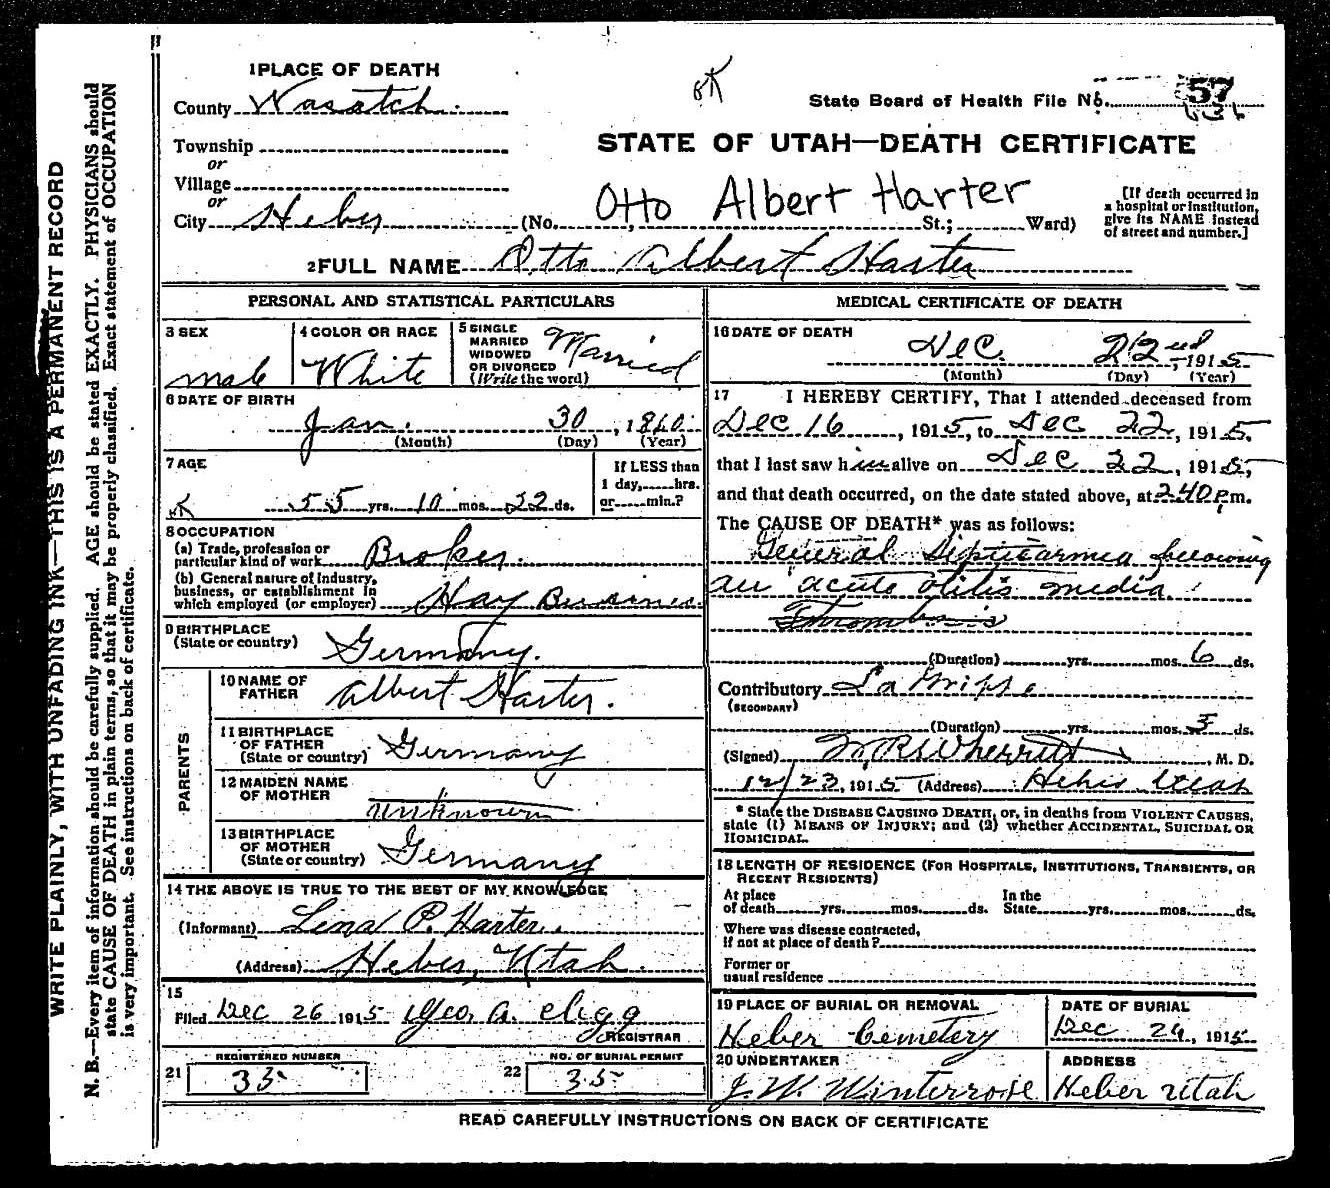 WRITE PLAINLY, WITH UNFADING INK—THIS IS A PERMANENT RECORD
N. B.—Every item of information should be carefully supplied. AGE should be stated EXACTLY. PHYSICIANS should
state CAUSE OF DEATH in plain terms, so that it may be properly classified. Exact statement of OCCUPATION
is very important. See instructions on back of certificate.
1 PLACE OF DEATH
County Wasatch
Township
or
Village
or
City Heber (No. , St.; Ward)
OK
State Board of Health File No. 57
STATE OF UTAH—DEATH CERTIFICATE
Otto Albert Harter
[If death occurred in
a hospital or institution,
give its NAME instead
of street and number.]
2 FULL NAME Otto Albert Harter
PERSONAL AND STATISTICAL PARTICULARS
3 SEX
male
4 COLOR OR RACE
White
5 SINGLE
MARRIED
WIDOWED
OR DIVORCED
(Write the word)
Married
6 DATE OF BIRTH
Jan. 30, 1860
(Month) (Day) (Year)
7 AGE
OK 55 yrs. 10 mos. 22 ds.
If LESS than
1 day, hrs.
or min.?
8 OCCUPATION
(a) Trade, profession or
particular kind of work Broker.
(b) General nature of Industry,
business, or establishment in
which employed (or employer) Hay Business.
9 BIRTHPLACE
(State or country) Germany.
PARENTS
10 NAME OF
FATHER Albert Harter.
11 BIRTHPLACE
OF FATHER
(State or country) Germany
12 MAIDEN NAME
OF MOTHER unknown
13 BIRTHPLACE
OF MOTHER
(State or country) Germany
14 THE ABOVE IS TRUE TO THE BEST OF MY KNOWLEDGE
(Informant) Lena P. Harter.
(Address) Heber, Utah.
15
Filed Dec 26 1915 Geo. A.
REGISTRAR
REGISTERED NUMBER
21 35
NO. OF BURIAL PERMIT
22 35
MEDICAL CERTIFICATE OF DEATH
16 DATE OF DEATH
Dec. 22nd, 1915
(Month) (Day) (Year)
17 I HEREBY CERTIFY, That I attended deceased from
Dec 16, 1915, to Dec 22, 1915,
that I last saw him alive on Dec 22, 1915,
and that death occurred, on the date stated above, at 2:40 p.m.
The CAUSE OF DEATH* was as follows:
General Septicaemia following
an acute otitis media
Thrombosis
(Duration) yrs. mos. 6 ds.
Contributory La Grippe
(SECONDARY)
(Duration) yrs. mos. 5 ds.
(Signed) W R Wherritt, M. D.
12/23, 1915 (Address) Heber Utah
* State the DISEASE CAUSING DEATH, or, in deaths from VIOLENT CAUSES,
state (1) MEANS OF INJURY; and (2) whether ACCIDENTAL, SUICIDAL OR
HOMICIDAL.
18 LENGTH OF RESIDENCE (FOR HOSPITALS, INSTITUTIONS, TRANSIENTS, OR
RECENT RESIDENTS)
At place In the
of death yrs. mos. ds. State yrs. mos. ds.
Where was disease contracted,
if not at place of death?
Former or
usual residence
19 PLACE OF BURIAL OR REMOVAL
Heber Cemetery
DATE OF BURIAL
Dec 24, 1915
20 UNDERTAKER
J. W. Winterrose
ADDRESS
Heber Utah
READ CAREFULLY INSTRUCTIONS ON BACK OF CERTIFICATE